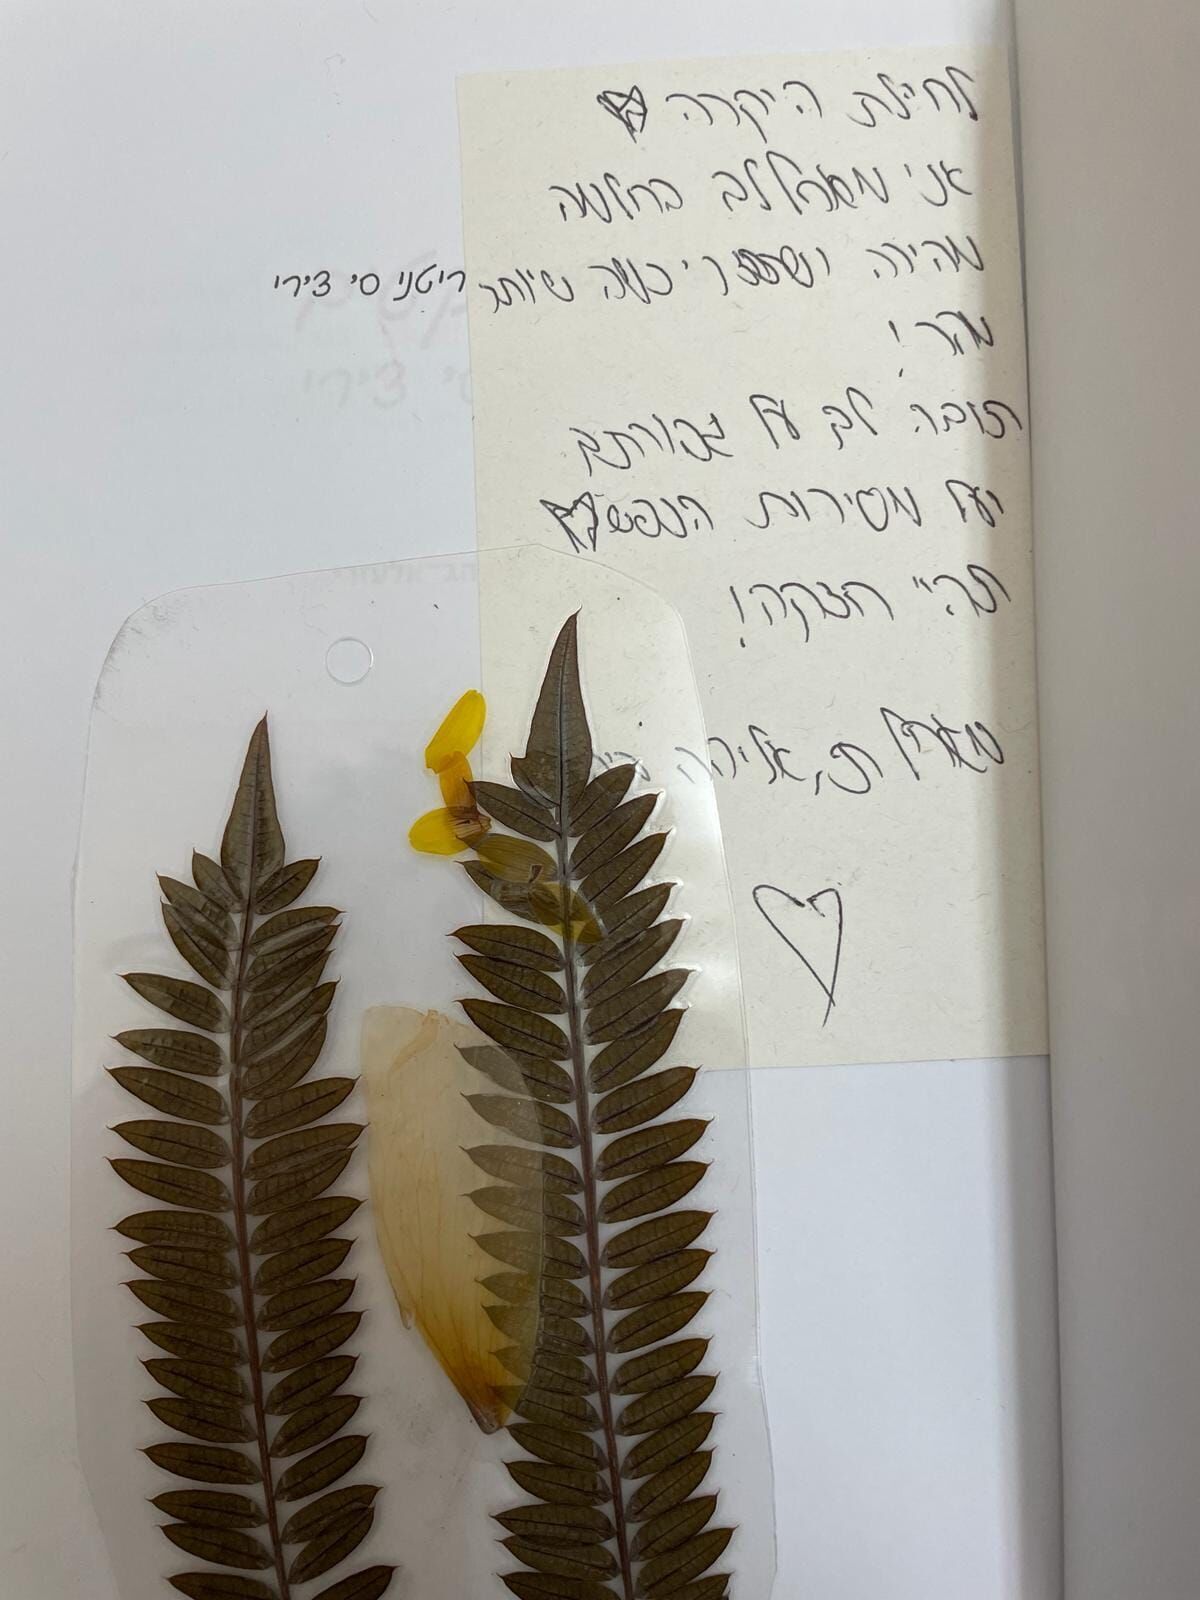 לחיילת היקרה
אני מאחלת לך החלמה
מהירה ושתחזרי כמה שיותר
מהר!
תודה לך על גבורתך
ועל מסירות הנפש
תהיי חזקה!
מאחלת, אליה
ריטני סי צירי
סי צירי